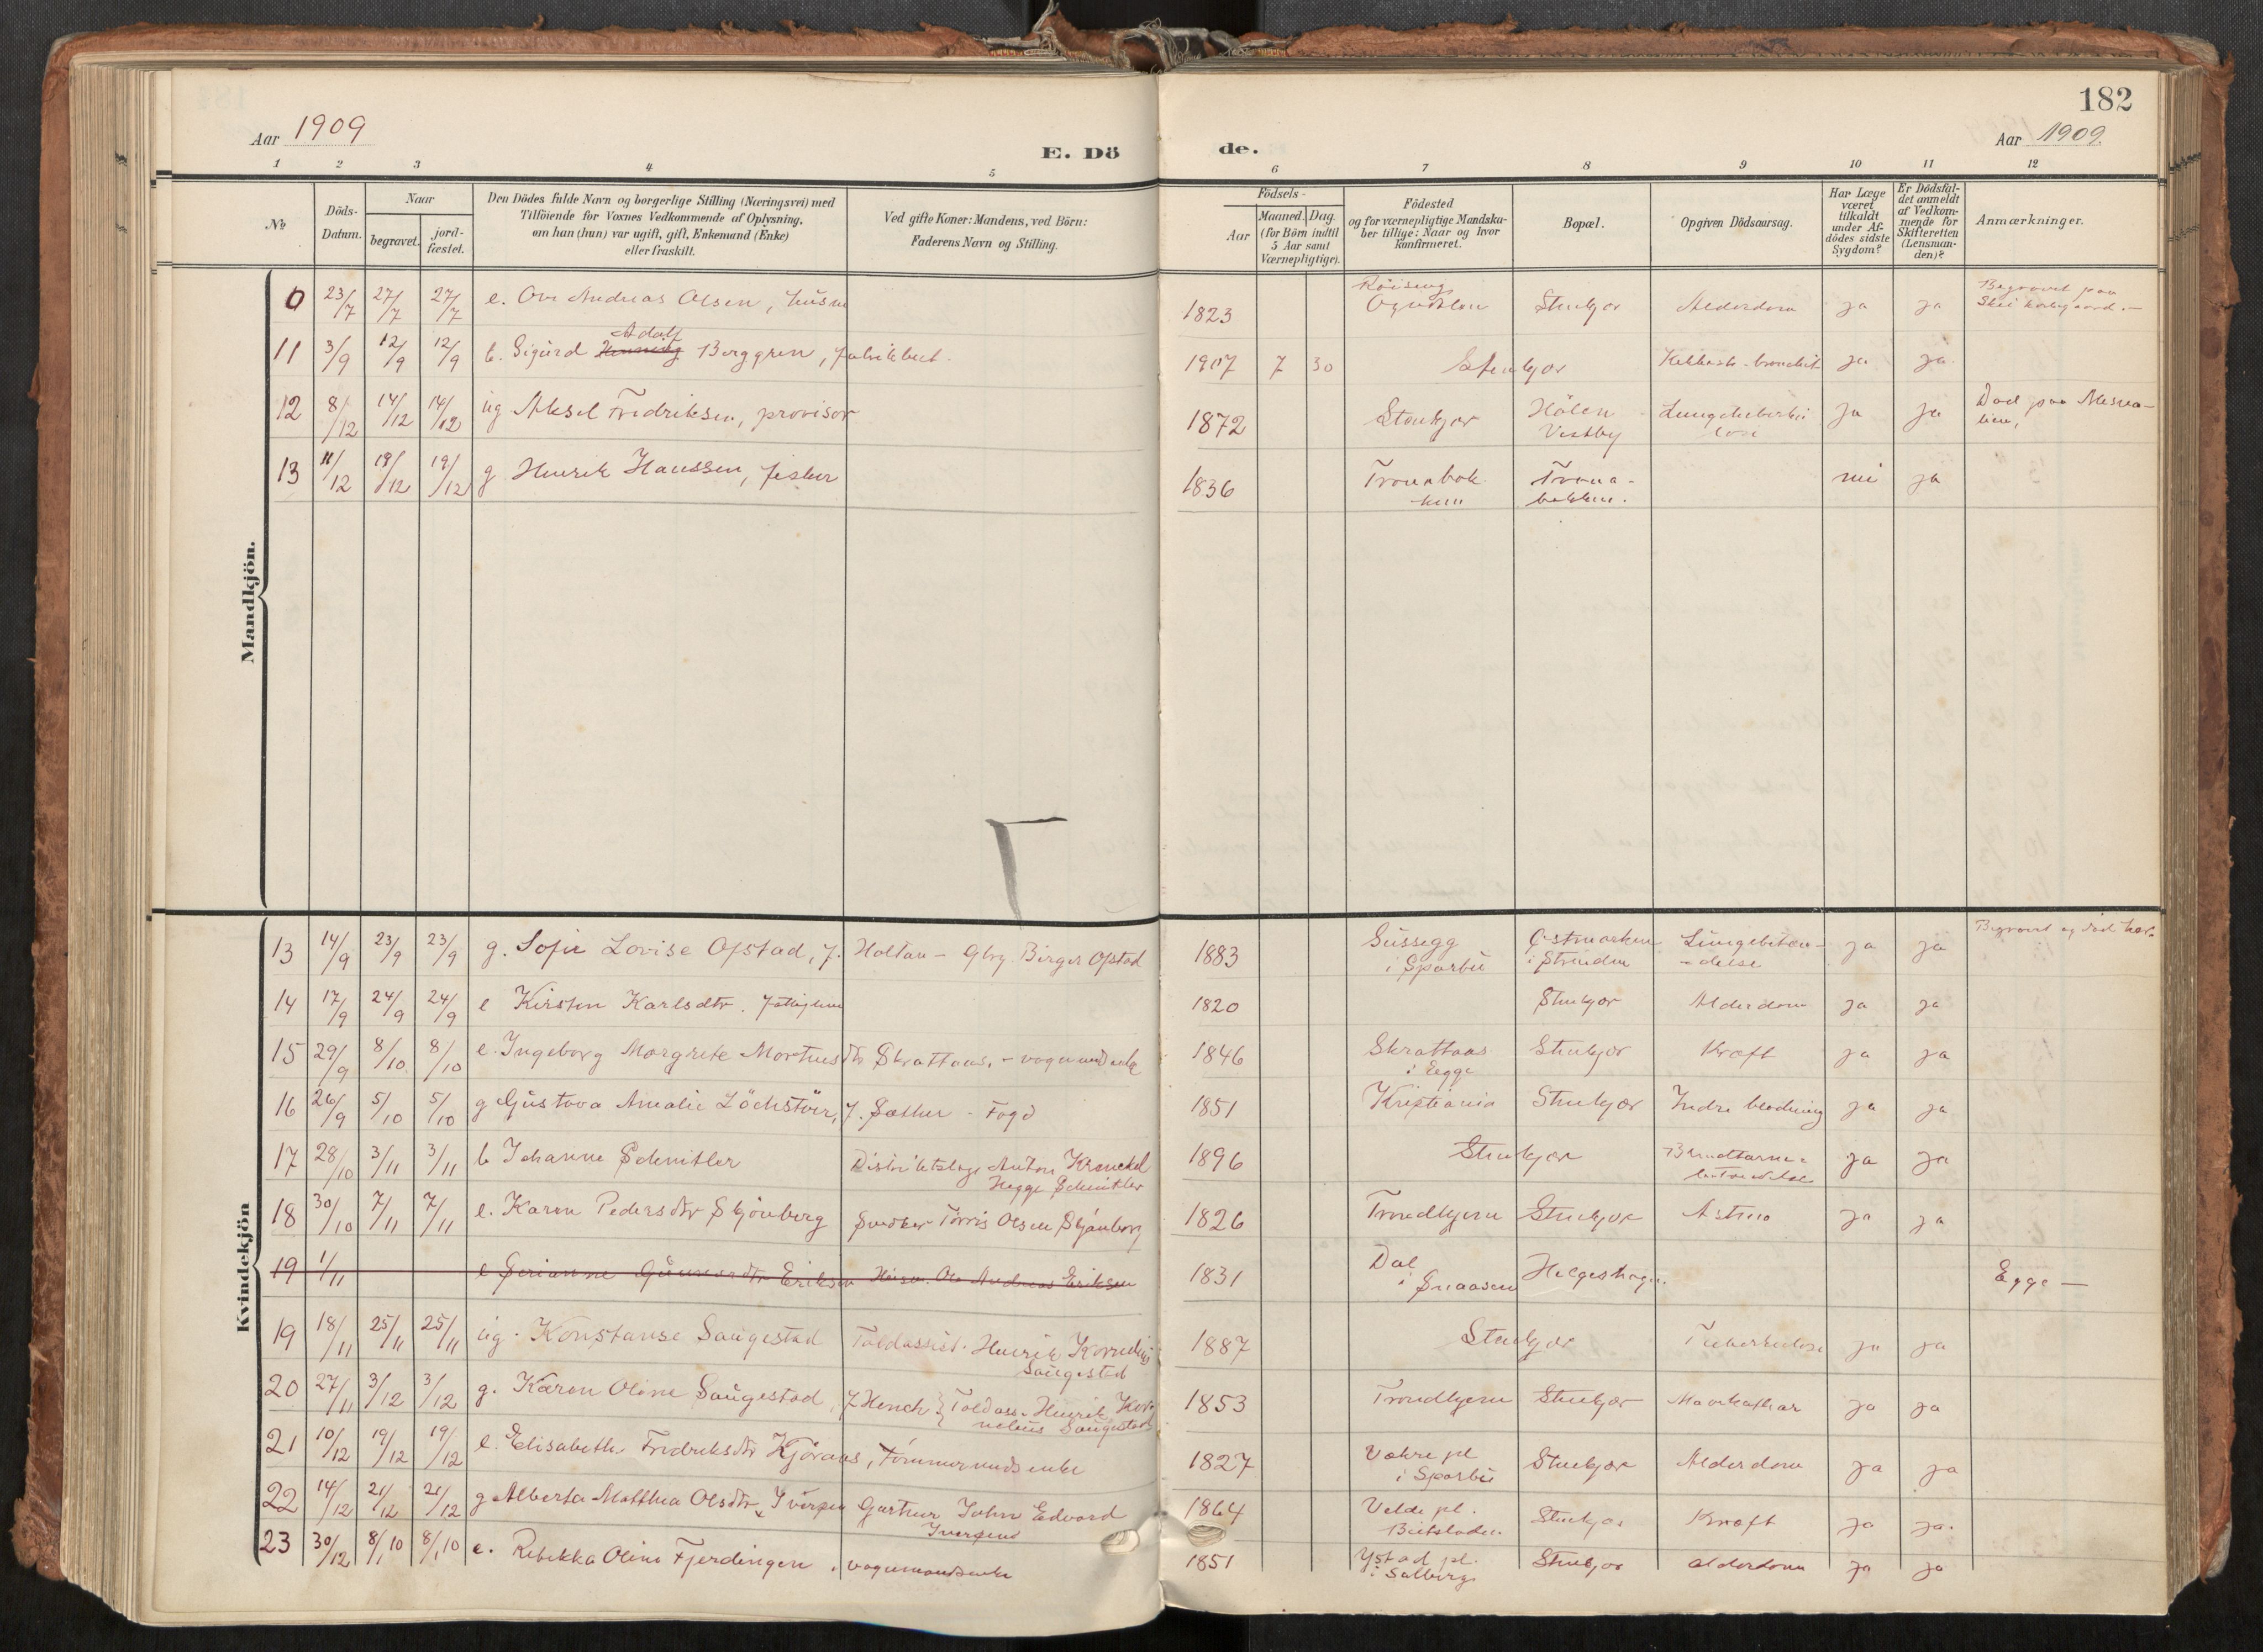 182
Aar 1909
Aar 1909.
E. Dö
de.
1 2 3 4 5 6 7 8 9 10 11 12
№
Döds-
Datum.
Naar
begravet.
jord-
fæstet.
Den Dödes fulde Navn og borgerlige Stilling (Næringsvei) med
Tilföiende for Voxnes Vedkommende af Oplysning,
om han (hun) var ugift, gift, Enkemand (Enke)
eller fraskilt.
Ved gifte Koner: Mandens, ved Börn:
Faderens Navn og Stilling.
Födsels-
Aar
Maaned. Dag.
(for Börn indtil
5 Aar samt
Værnepligtige).
Födested
og for værnepligtige Mandska-
ber tillige: Naar og hvor
konfirmeret.
Bopæl.
Opgiven Dödsaarsag.
Har Læge
været
tilkaldt
under Af-
dödes sidste
Sygdom?
Er Dödsfal-
det anmeldt
af Vedkom-
mende for
Skifteretten
(Lensman-
den)?
Anmærkninger.
Mandkjön.
0 23/7 27/7 27/7 e. Ove Andreas Olsen, husm 1823 Röiseng Stenkjær Alderdom ja ja Begravet paa
Skei kirkegaard.
Adolf
11 3/9 12/9 12/9 b. Sigurd Berggren, 1907 7 30 Stenkjær ja ja
12 8/12 14/12 14/12 ug Aksel Fredriksen, provisor 1872 Stenkjær Hölen ja ja Död paa Mesna-
Vestby lien,
13 11/12 19/12 19/12 g Henrik Hanssen, fisker 1836 Tronabek- Trona- nei ja
ken bekken.
Kvindekjön
13 14/9 23/9 23/9 g. Sofie Lovise Opstad, f. Holtan - Gbrg. Birger Opstad 1883 Gussegg Östmarken Lungebeten- ja ja Begravet og död her
i Sparbu i Strinden delse
14 17/9 24/9 24/9 e Kirsten Karlsdtr. fattiglem 1820 Stenkjær Alderdom ja ja
15 29/9 8/10 8/10 e. Ingeborg Margrete Mortensdtr Skrattaas, - vognmandsenke 1846 Skrattaas Stenkjær Kræft ja ja
i Egge
16 26/9 5/10 5/10 g Gustava Amalie Löchstöer, f. Sæther - Fogd 1851 Kristiania Stenkjær Indre blödning ja ja
17 28/10 3/11 3/11 b Johanne Schnitler Distriktslæge Anton Krenckel 1896 Stenkjær Blindtarms- ja ja
Hegge Schnitler betændelse
18 30/10 7/11 7/11 e. Karen Pedersdtr Skjönberg Snedker Torris Olsen Skjönberg 1826 Trondhjem Stenkjær Astma ja ja
19 1/11 e Serianne Gunnersdtr Eriksen Husm. Ole Andreas Eriksen 1831 Dal Helgeshagen. Egge —
i Snaasen
19 18/11 25/11 25/11 ug. Konstanse Saugestad Toldassist. Henrik Kornelius 1887 Stenkjær Tuberkulose ja ja
Saugestad
20 27/11 3/12 3/12 g. Karen Oline Saugestad, f Hench Toldass. Henrik Kor- 1853 Trondhjem Stenkjær Mavekathar ja ja
nelius Saugestad
21 10/12 19/12 19/12 e. Elisabeth Fredriksdtr Kjöraas, Tömmermandsenke 1827 Vekre pl Stenkjær Alderdom ja ja
i Sparbu
22 14/12 21/12 21/12 g Alberta Matthea Olsdtr Iversen Gartner John Edvard 1864 Velde pl. Stenkjær Kræft ja ja.
Iversens Beitstaden
23 30/12 8/1 10 8/1 10 e. Rebekka Oline Fjerdingen, vognmandsenke 1851 Ystad pl. Stenkjær alderdom ja ja
i Salberg